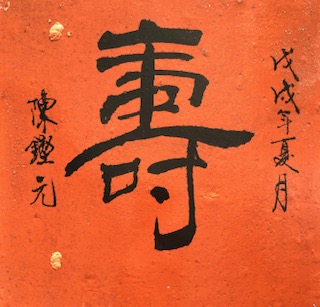 戊戌年夏月
壽
陳鏗元